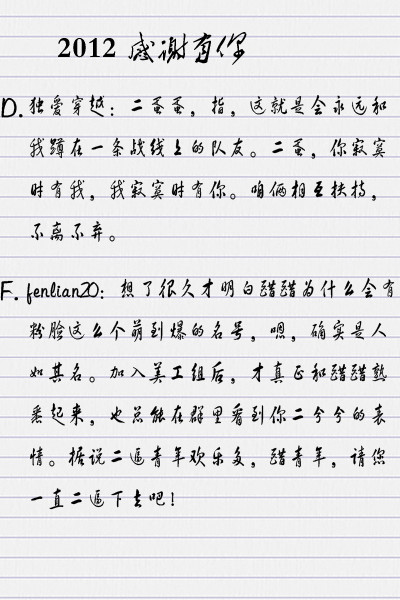 2012 感谢有你
D. 独爱穿越：二蚤蚤，指，这就是会永远和
我蹲在一条战线上的队友。二蚤，你寂寞
时有我，我寂寞时有你。咱俩相互扶持，
不离不弃。
F. fenlian20：想了很久才明白醋醋为什么会有
粉脸这么个萌到爆的名号，嗯，确实是人
如其名。加入美工组后，才真正和醋醋熟
悉起来，也总能在群里看到你二兮兮的表
情。据说二逼青年欢乐多，醋青年，请您
一直二逼下去吧！